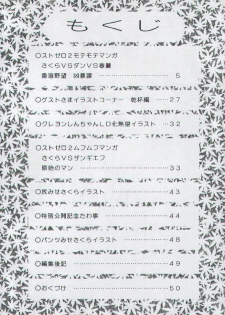 もくじ
○ストゼロ2モテモテマンガ
さくらVSダンVS春麗
香港野望 凶暴課・・・・・・・・5
○ゲストさまイラストコーナー 乾杯編・・・27
○クレヨンしんちゃんLD化熱望イラスト・・・32
○ストゼロ2ムフムフマンガ
さくらVSザンギエフ
原始のマン・・・・・・・・・・33
○尻みせさくらイラスト・・・・・・・43
○特別公開記念たわ事・・・・・・・・44
○パンツみせさくらイラスト・・・・・48
○編集後記・・・・・・・・・・・・・49
○おくづけ・・・・・・・・・・・・・50